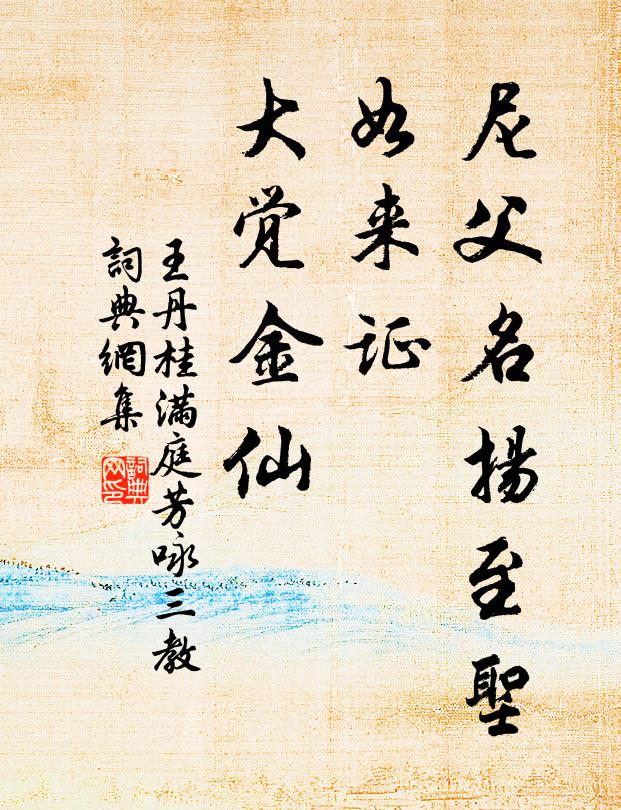 尼父名揚至聖
如来证
大觉金仙
王丹桂满庭芳咏三教
詞典網集
詞典
网印